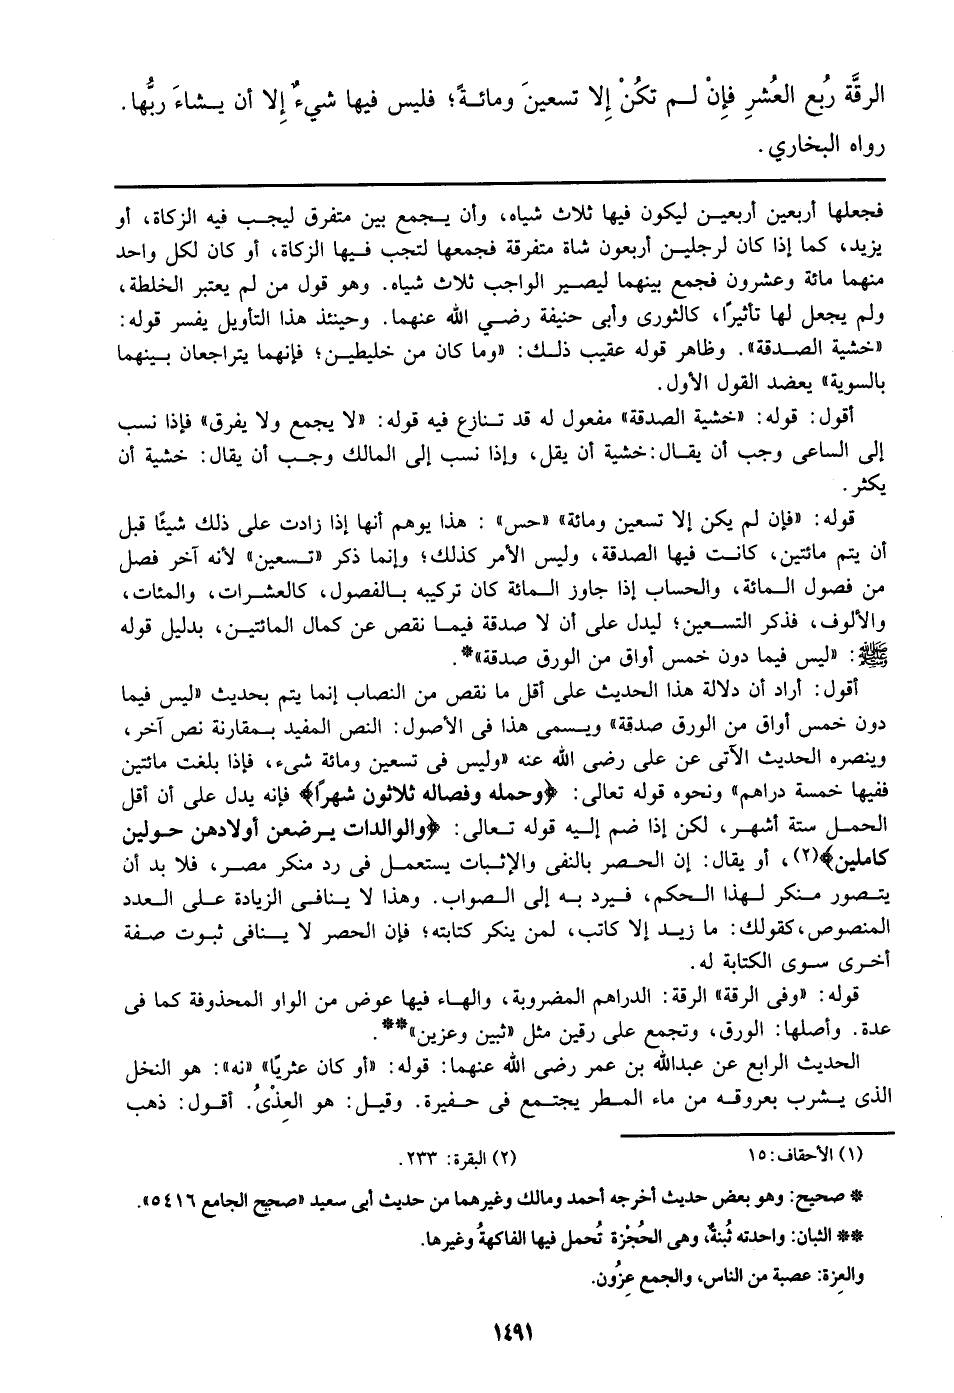 الرقَّة رُبع العُشرِ فإنْ لـم تكُنْ إلا تسعينَ ومائـةً؛ فليس فيها شيءٌ إلا أن يـشاءَ ربُّها.
رواه البخاري.
فجعلها أربعين أربعيـن ليكون فيها ثلاث شياه، وأن يـجمع بين متفرق ليجـب فيه الزكاة، أو
يزيد، كما إذا كان لرجليـن أربعون شاة متفرقة فجمعها لتجب فـيها الزكاة، أو كان لكل واحد
منهما مائة وعشرون فجمع بينهما ليصـير الواجب ثلاث شياه. وهو قول من لم يعتبر الخلطة،
ولم يجعل لها تأثيرًا، كالثورى وأبى حنيفة رضـي الله عنهما. وحينئذ هذا التأويل يفسر قوله:
«خشية الصـدقة». وظاهر قوله عقيب ذلـك: «وما كان من خليطيـن؛ فإنهما يتراجعان بـينهما
بالسوية» يعضد القول الأول.
أقول: قوله: «خشية الصدقة» مفعول له قد تـنازع فيه قوله: «لا يجمع ولا يفرق» فإذا نسب
إلى الساعى وجب أن يقـال: خشية أن يقل، وإذا نسب إلى المالك وجـب أن يقال: خشية أن
يكثر.
قوله: «فإن لم يكن إلا تسعين ومائة» «حس» : هذا يوهم أنها إذا زادت على ذلك شيئًا قبل
أن يتم مائتين، كانـت فيها الصدقة، وليس الأمر كذلك؛ وإنما ذكر «تـسعين» لأنه آخر فصل
من فصول الـمائة، والحساب إذا جاوز الـمائة كان تركيبه بـالفصول، كالعشـرات، والمئات،
والألوف، فذكر التسـعين؛ ليدل على أن لا صدقة فيمـا نقص عن كمال المائتيـن، بدليل قوله
ﷺ: «ليس فيما دون خمس أواق من الورق صدقة»*.
أقول: أراد أن دلالة هذا الحديث على أقل ما نقص من النصاب إنما يتم بحديث «ليس فيما
دون خمس أواق من الورق صدقة» ويسمى هذا فى الأصول: النص المفيد بـمقارنة نص آخر،
وينصره الحديث الآتى عن على رضى الله عنه «وليس فى تسعين ومائة شىء، فإذا بلغت مائتين
ففيها خمسة دراهم» ونحوه قوله تعالى: ﴿وحمله وفصاله ثلاثون شهرًا﴾ فإنه يدل على أن أقل
الحمل ستة أشهـر، لكن إذا ضم إليه قوله تـعالى: ﴿والوالدات يـرضعن أولادهن حـولين
كاملين﴾(٢)، أو يقال: إن الحـصر بالنفى والإثـبات يستعمـل فى رد منكر مصـر، فلا بد أن
يتـصور مـنكر لـهذا الـحكم، فـيرد بـه إلى الـصواب. وهذا لا يـنافـى الزيادة علـى العدد
المنصوص، كقولك: ما زيـد إلا كاتب، لمن ينكر كتابته؛ فإن الحصر لا يـنافى ثبـوت صـفة
أخـرى سـوى الكتابة له.
قوله: «وفى الرقة» الرقة: الدراهم المضروبة، والهـاء فيها عوض من الواو المحذوفة كما فى
عدة. وأصلها: الورق، وتجمع على رقين مثل «ثبين وعزين»**.
الحديث الرابع عن عبدالله بن عمر رضى الله عنهما: قوله: «أو كان عثريًا» «نه»: هو النخل
الذى يـشرب بعروقـه من ماء المـطر يجتمـع فى حـفيرة. وقيـل: هو العِذْىُ. أقـول: ذهب
(١) الأحقاف: ١٥
(٢) البقرة: ٢٣٣.
* صحيح: وهو بعض حديث أخرجه أحمد ومالك وغيرهما من حديث أبى سعيد «صحيح الجامع ٥٤١٦».
** الثبان: واحدته ثُبنةٌ، وهى الحُجْزة تُحمل فيها الفاكهةُ وغيرها.
والعِزة: عصبة من الناس، والجمع عِزُون.
١٤٩١